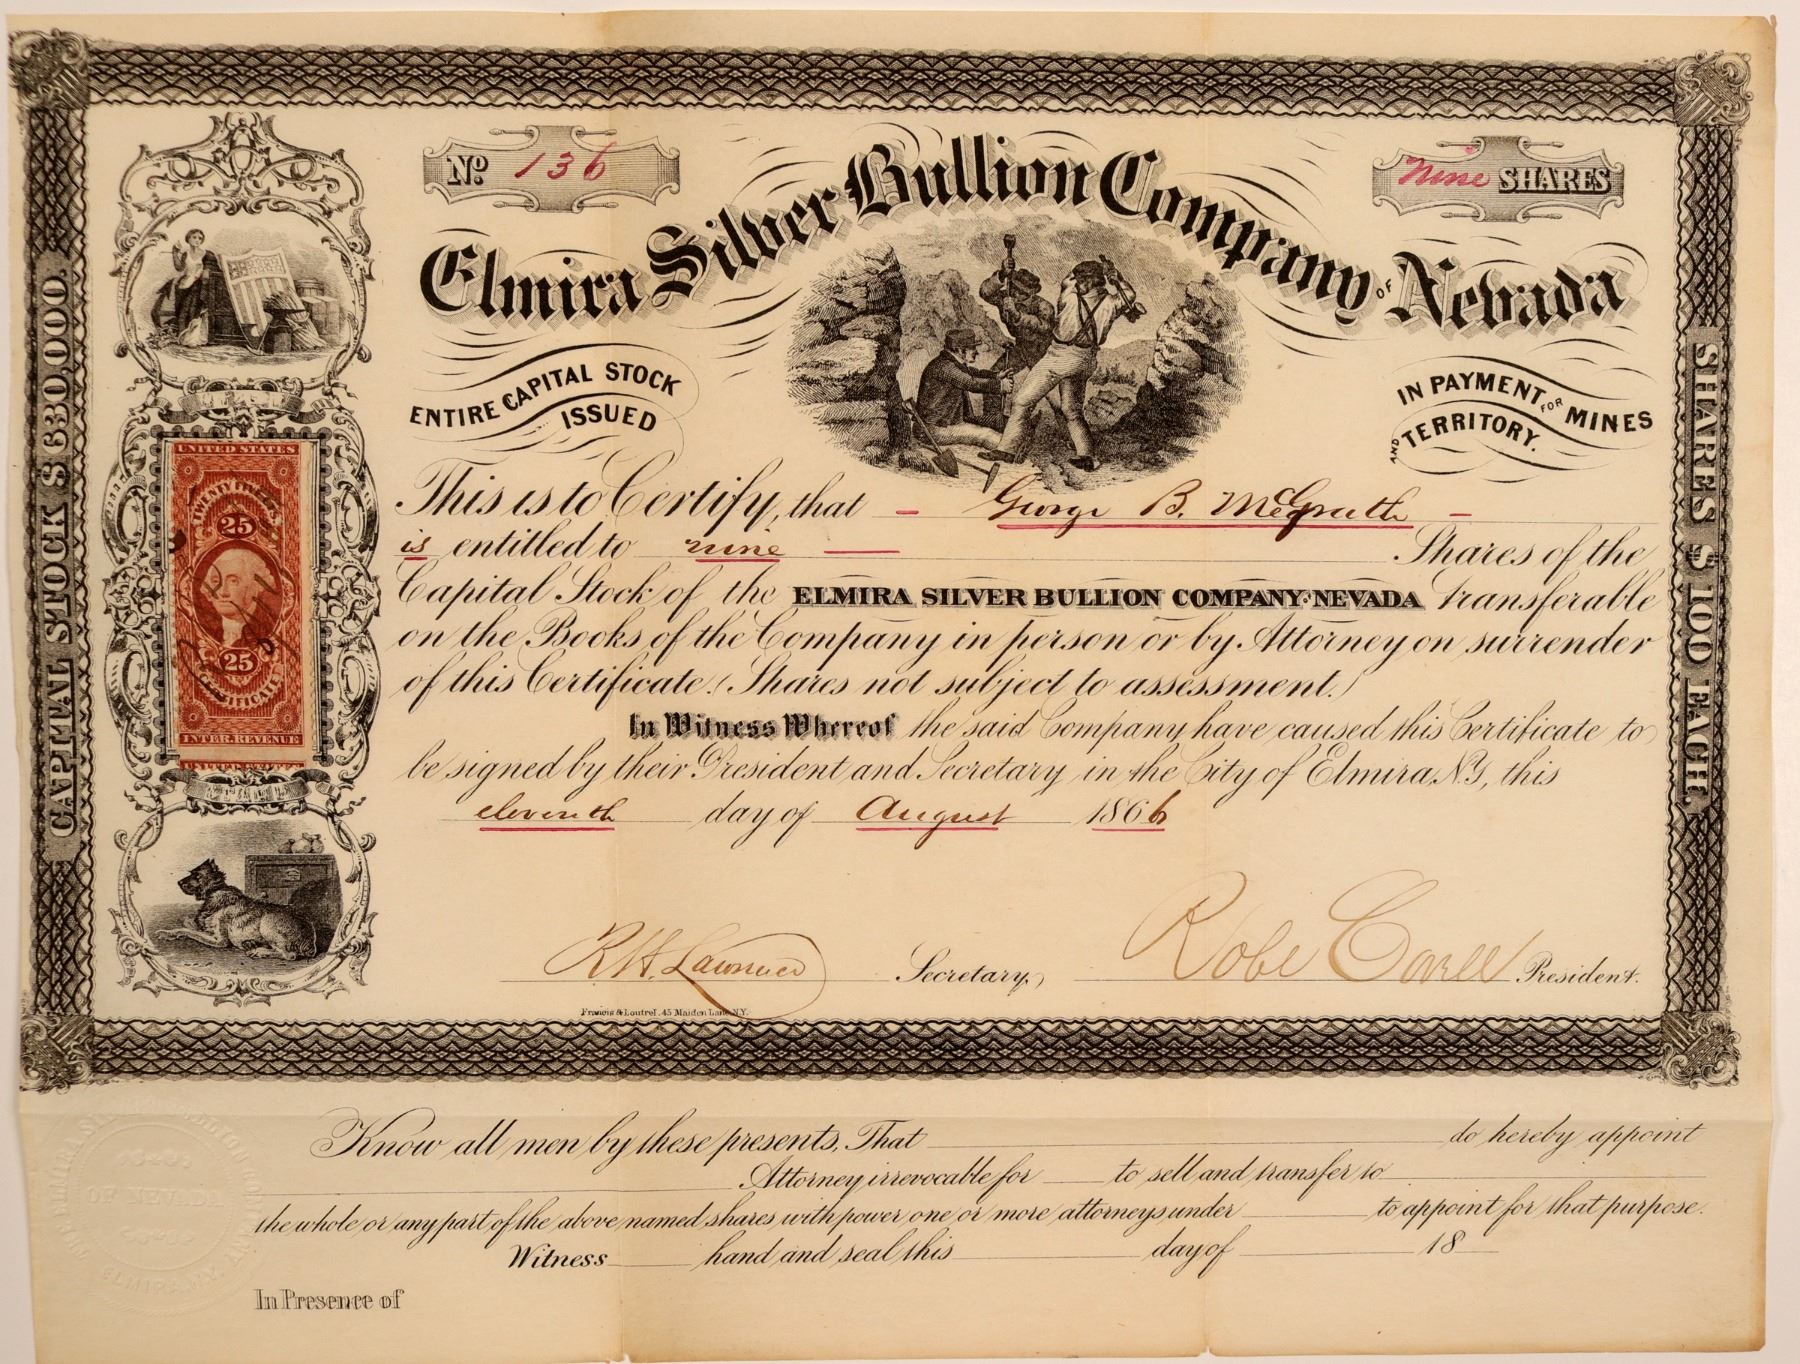 No. 136
Nine SHARES
Elmira Silver Bullion Company OF Nevada
ENTIRE CAPITAL STOCK
ISSUED
IN PAYMENT FOR MINES
AND TERRITORY.
CAPITAL STOCK $630,000.
SHARES $100 EACH.
UNITED STATES
TWENTY FIVE CTS.
25
25
CERTIFICATE
INTER. REVENUE
This is to Certify, that – George B. McGrath –
is entitled to nine — Shares of the
Capital Stock of the ELMIRA SILVER BULLION COMPANY OF NEVADA transferable
on the Books of the Company in person or by Attorney on surrender
of this Certificate. (Shares not subject to assessment.)
In Witness Whereof the said Company have caused this Certificate to
be signed by their President and Secretary in the City of Elmira N.Y, this
eleventh day of August 1866
R.H. Lawrence Secretary,
Robt Covell President.
Francis & Loutrel. 45 Maiden Lane N.Y.
Know all men by these presents, That do hereby appoint
Attorney irrevocable for to sell and transfer to
the whole or any part of the above named shares with power one or more attorneys under to appoint for that purpose.
Witness hand and seal this day of 18
In Presence of
OF NEVADA
ELMIRA N.Y.